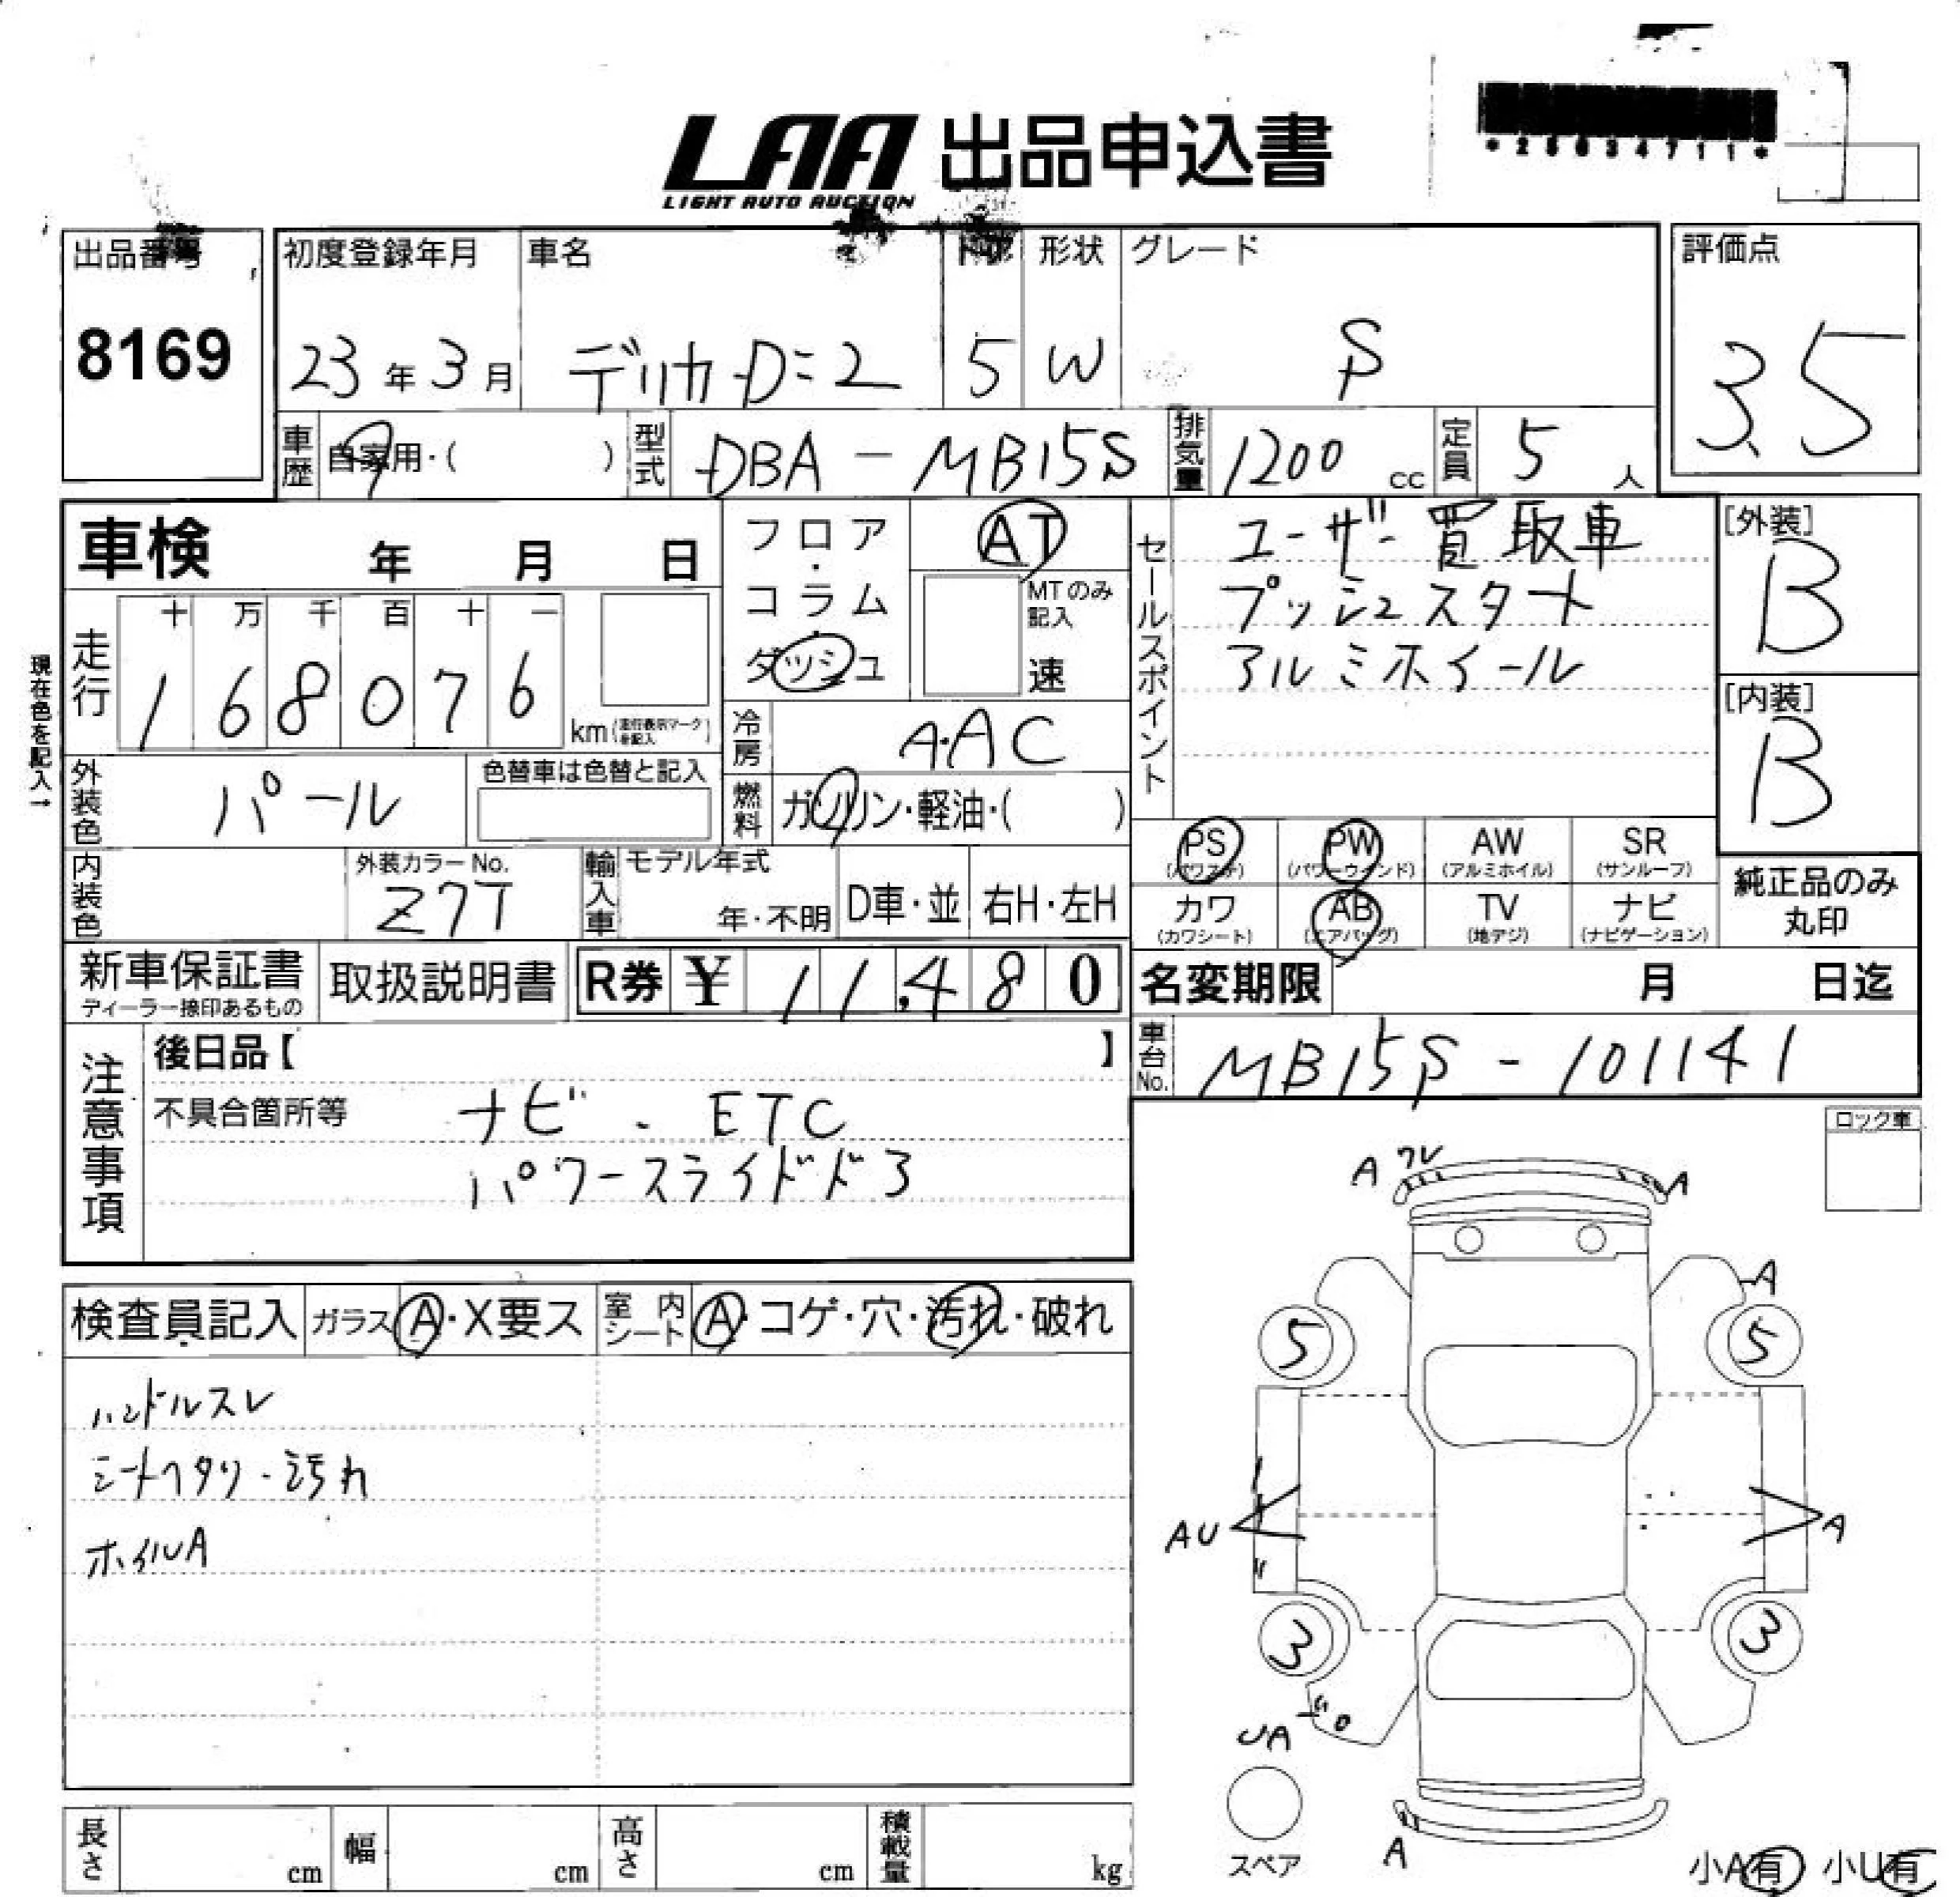 LAA 出品申込書
LIGHT AUTO AUCTION
出品番号
8169
初度登録年月
23年3月
車名
デリカD:2
5
形状
W
グレード
S
評価点
3.5
車歴
自家用・( )
型式
DBA-MB15S
排気量
1200 cc
定員
5 人
車検 年 月 日
フロア・コラム・ダッシュ
AT
MTのみ記入
速
セールスポイント
ユーザー買取車
プッシュスタート
アルミホイール
[外装]
B
[内装]
B
現在色を記入→
走行
十 万 千 百 十 一
1 6 8 0 7 6
km
冷房
A・AC
外装色
パール
色替車は色替と記入
燃料
ガソリン・軽油・( )
PS (パワステ)
PW (パワーウインド)
AW (アルミホイル)
SR (サンルーフ)
カワ (カワシート)
AB (エアバッグ)
TV (地デジ)
ナビ (ナビゲーション)
純正品のみ
丸印
内装色
外装カラーNo.
Z7T
輸入車
モデル年式
年・不明
D車・並
右H・左H
新車保証書
ディーラー捺印あるもの
取扱説明書
R券 ¥ 11,480
名変期限 月 日迄
車台No.
MB15S-101141
注意事項
後日品【 】
不具合箇所等
ナビ・ETC
パワースライドドア
ロック車
検査員記入
ガラス A・X要ス
室内シート A・コゲ・穴・汚れ・破れ
ハンドルスレ
シートヘタリ・汚れ
ホイルA
A ワレ
A
A
5
5
AU
A
3
3
UA
A
スペア
長さ cm
幅 cm
高さ cm
積載量 kg
小A有 小U有